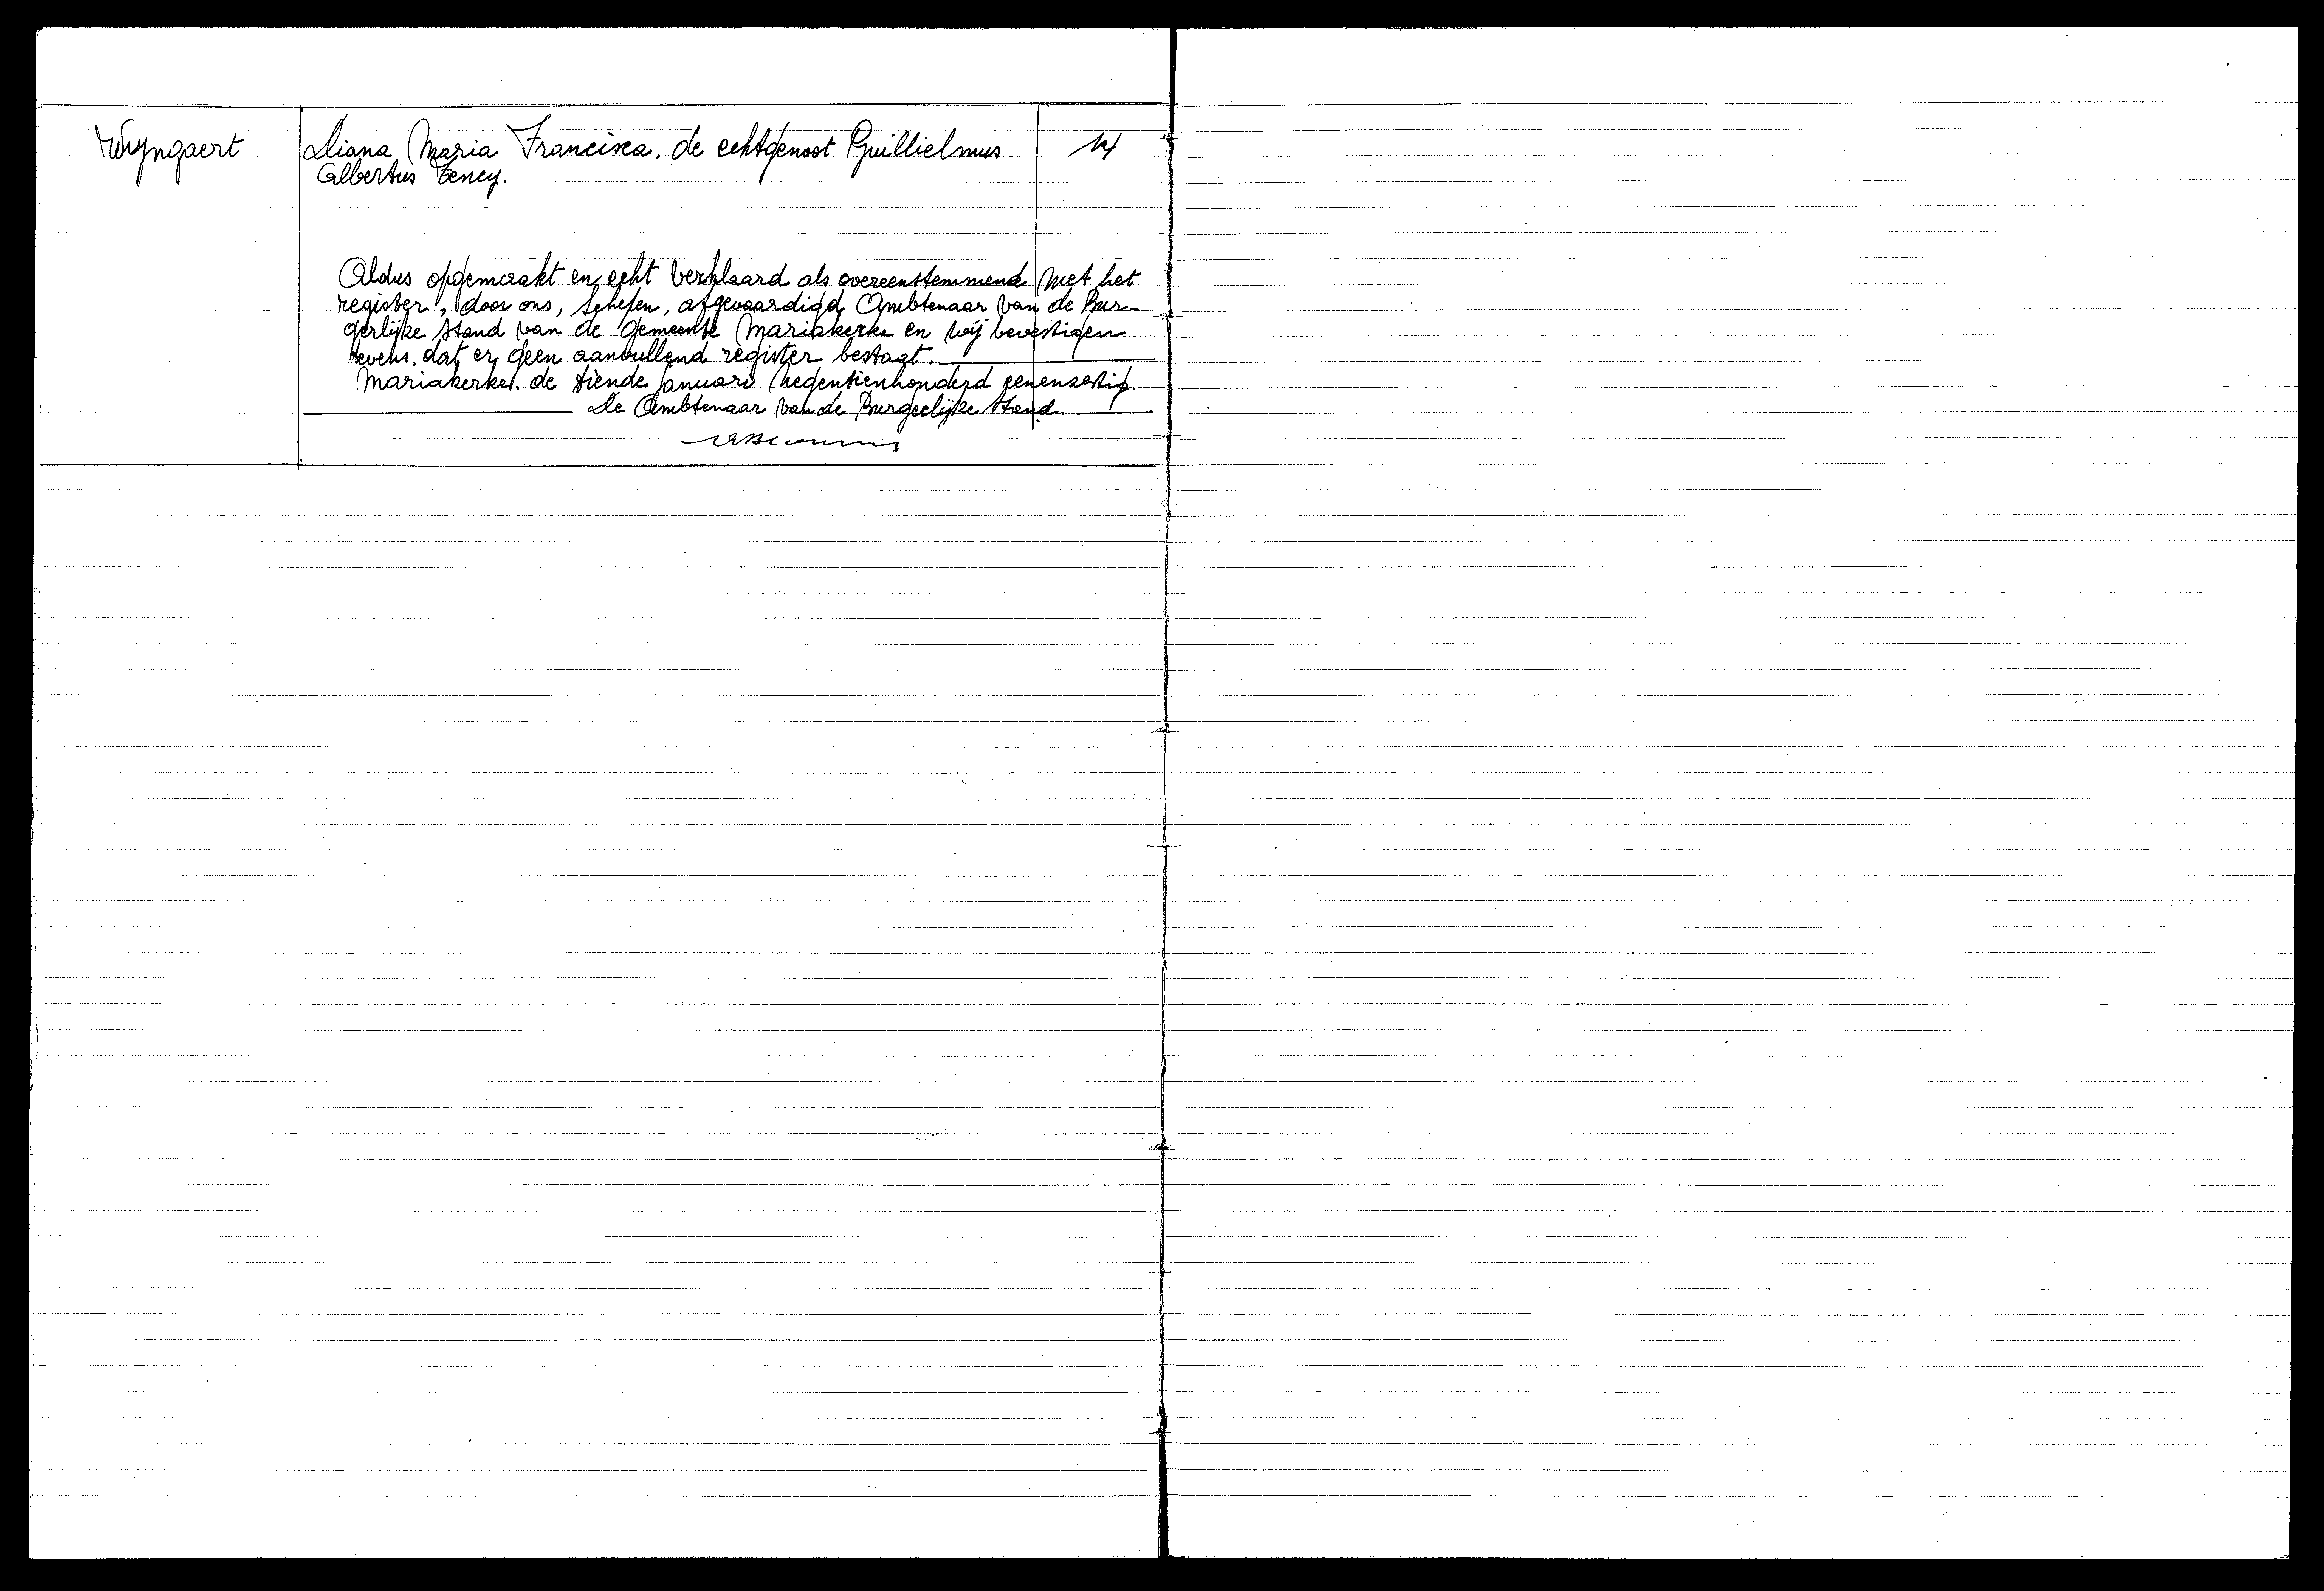 Wyngaert Diana Maria Francisca. de echtgenoot Guillielmus 14
Albertus
Aldus opgemaakt en echt verklaard als overeenstemmend met het
register, door ons, schepen, afgevaardigd Ambtenaar van de Bur-
gerlijke stand van de Gemeente Mariakerke en wij bevestigen
tevens. dat er geen aanvullend register bestaat.
Mariakerke. de tiende januari negentienhonderd eenenzestig.
De Ambtenaar van de Burgeelijke stand.